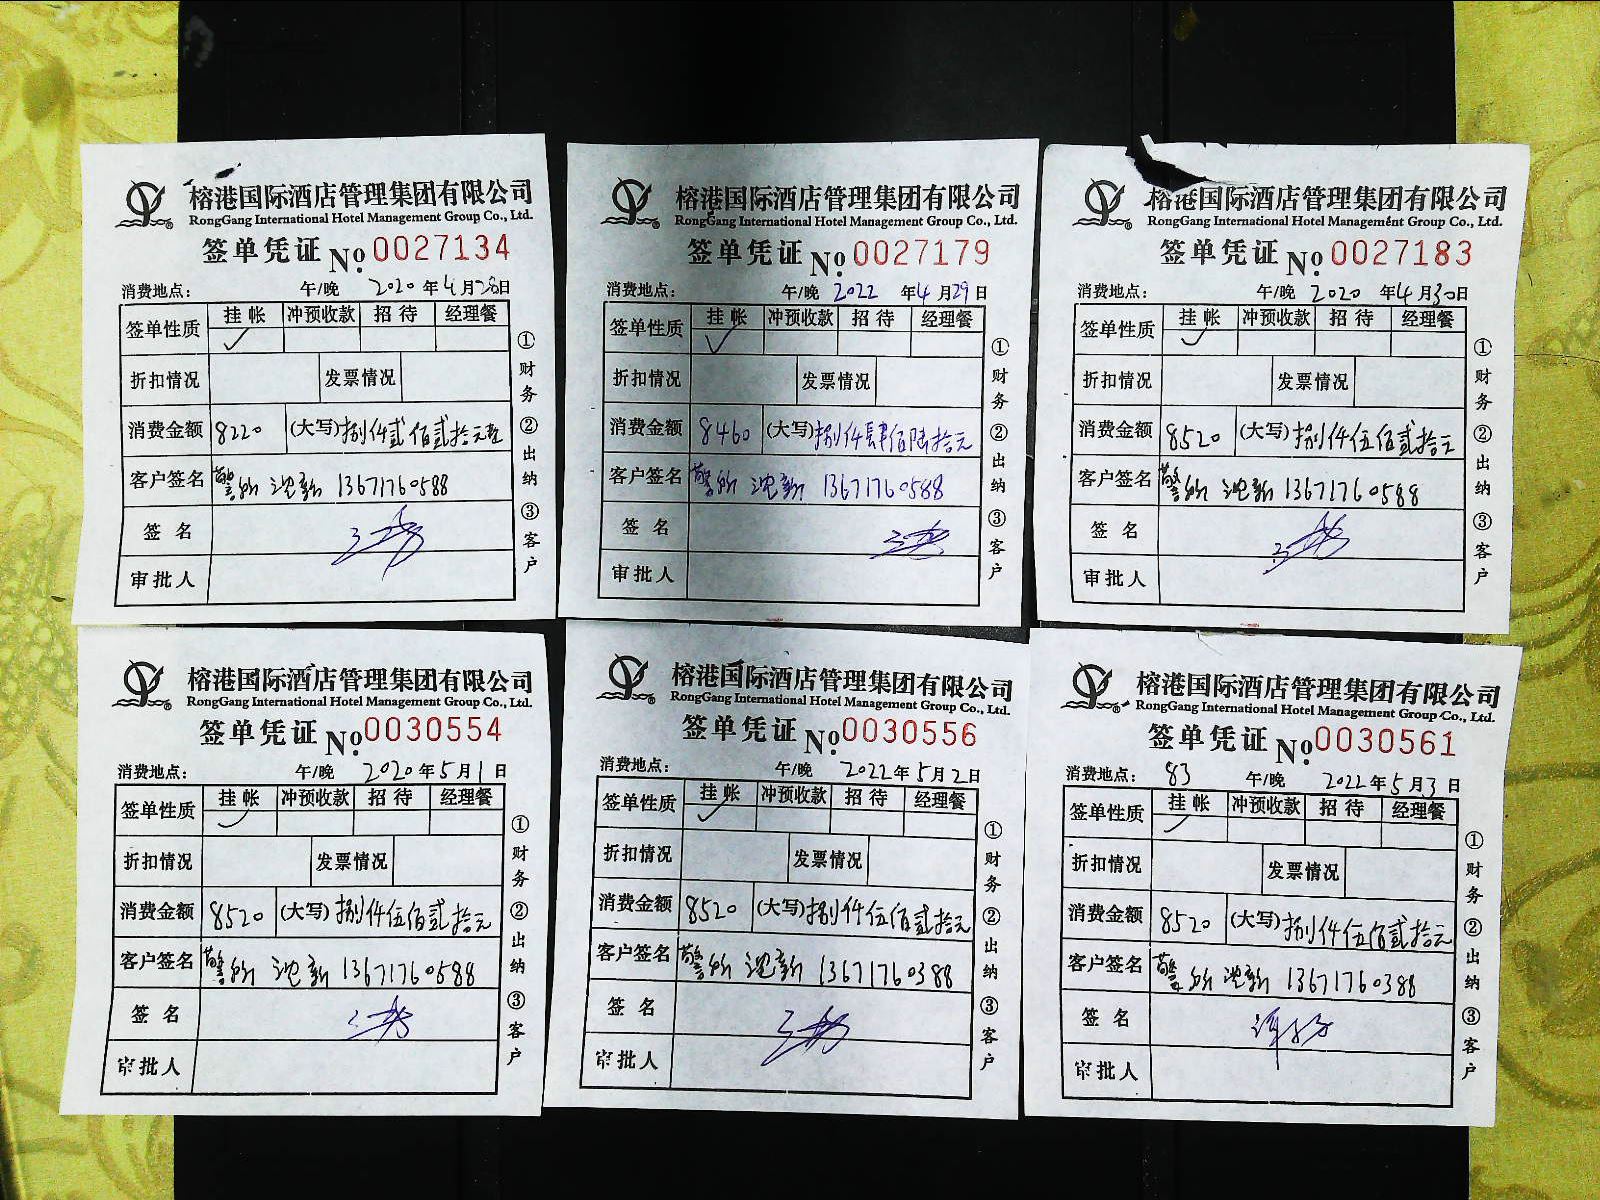 榕港国际酒店管理集团有限公司
RongGang International Hotel Management Group Co., Ltd.
签单凭证 No. 0027134
消费地点： 午/晚 2020 年 4 月 28 日
签单性质 挂帐 冲预收款 招待 经理餐
✓
折扣情况 发票情况
消费金额 8220 (大写) 捌仟贰佰贰拾元整
客户签名 警所 沈新 13671760588
签名
审批人
①财务 ②出纳 ③客户
榕港国际酒店管理集团有限公司
RongGang International Hotel Management Group Co., Ltd.
签单凭证 No. 0027179
消费地点： 午/晚 2022 年 4 月 29 日
签单性质 挂帐 冲预收款 招待 经理餐
✓
折扣情况 发票情况
消费金额 8460 (大写) 捌仟肆佰陆拾元
客户签名 警所 沈新 13671760588
签名
审批人
①财务 ②出纳 ③客户
榕港国际酒店管理集团有限公司
RongGang International Hotel Management Group Co., Ltd.
签单凭证 No. 0027183
消费地点： 午/晚 2020 年 4 月 30 日
签单性质 挂帐 冲预收款 招待 经理餐
✓
折扣情况 发票情况
消费金额 8520 (大写) 捌仟伍佰贰拾元
客户签名 警所 沈新 13671760588
签名
审批人
①财务 ②出纳 ③客户
榕港国际酒店管理集团有限公司
RongGang International Hotel Management Group Co., Ltd.
签单凭证 No. 0030554
消费地点： 午/晚 2020 年 5 月 1 日
签单性质 挂帐 冲预收款 招待 经理餐
✓
折扣情况 发票情况
消费金额 8520 (大写) 捌仟伍佰贰拾元
客户签名 警所 沈新 13671760588
签名
审批人
①财务 ②出纳 ③客户
榕港国际酒店管理集团有限公司
RongGang International Hotel Management Group Co., Ltd.
签单凭证 No. 0030556
消费地点： 午/晚 2022 年 5 月 2 日
签单性质 挂帐 冲预收款 招待 经理餐
✓
折扣情况 发票情况
消费金额 8520 (大写) 捌仟伍佰贰拾元
客户签名 警所 沈新 13671760388
签名
审批人
①财务 ②出纳 ③客户
榕港国际酒店管理集团有限公司
RongGang International Hotel Management Group Co., Ltd.
签单凭证 No. 0030561
消费地点： 83 午/晚 2022 年 5 月 3 日
签单性质 挂帐 冲预收款 招待 经理餐
✓
折扣情况 发票情况
消费金额 8520 (大写) 捌仟伍佰贰拾元
客户签名 警所 沈新 13671760388
签名
审批人
①财务 ②出纳 ③客户